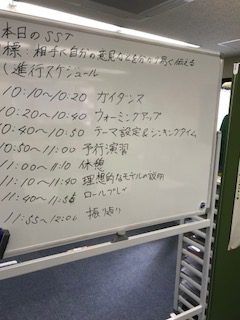 本日のSST
標：相手に自分の意見などを分かり易く伝える
(進行スケジュール
10:10～10:20 ガイダンス
10:20～10:40 ウォーミングアップ
10:40～10:50 テーマ設定&シンキングタイム
10:50～11:00 予行演習
11:00～11:10 休憩
11:10～11:40 理想的なモデルの説明
11:40～11:55 ロールプレイ
11:55～12:00 振り返り